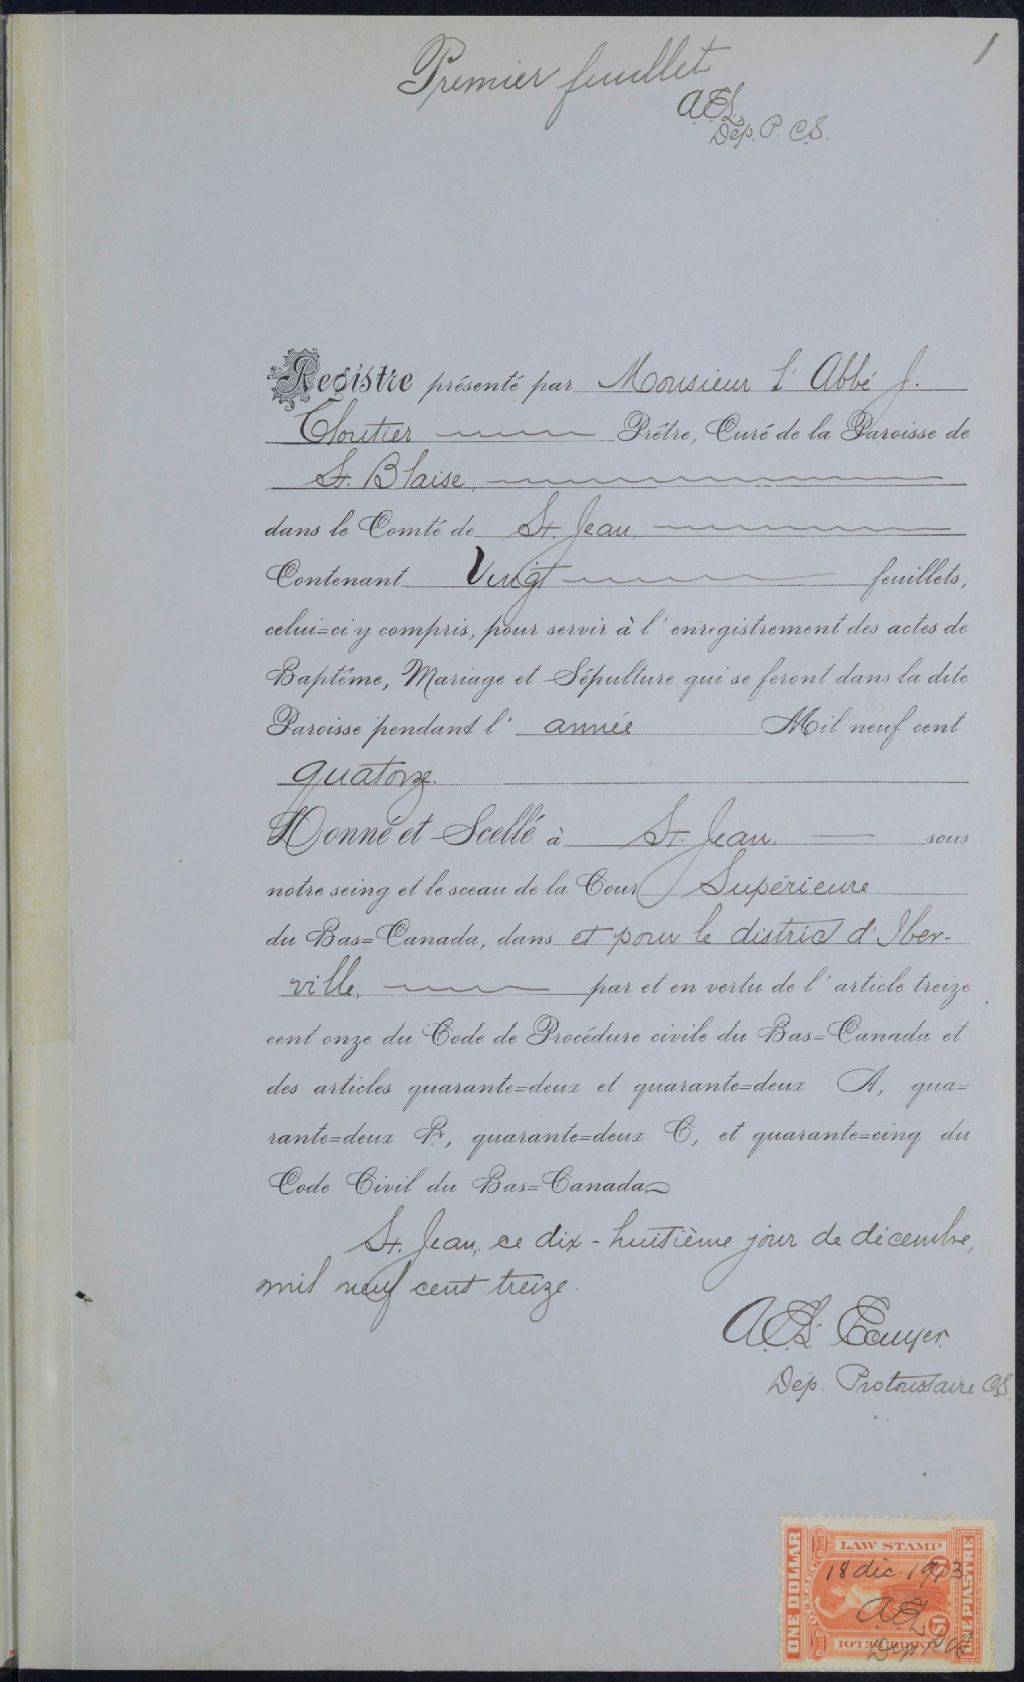 1
Premier feuillet
Dép. P. C.S.
Registre présenté par Monsieur l'Abbé J.
Cloutier Prêtre, Curé de la Paroisse de
St. Blaise,
dans le Comté de St. Jean,
Contenant Vingt feuillets,
celui=ci y compris, pour servir à l'enregistrement des actes de
Baptême, Mariage et Sépulture qui se feront dans la dite
Paroisse pendant l'année Mil neuf cent
quatorze.
Donné et Scellé à St. Jean, sous
notre seing et le sceau de la Cour Supérieure
du Bas=Canada, dans et pour le district d'Iber-
ville, par et en vertu de l'article treize
cent onze du Code de Procédure civile du Bas=Canada et
des articles quarante=deux et quarante=deux A, qua=
rante=deux B, quarante=deux C, et quarante=cinq du
Code Civil du Bas=Canada
St. Jean, ce dix-huitième jour de décembre,
mil neuf cent treize.
Dép. Protonotaire C.S.
LAW STAMP
ONE DOLLAR
ONE PIASTRE
$1
$1
TIMBRE LOI
18 déc. 1913